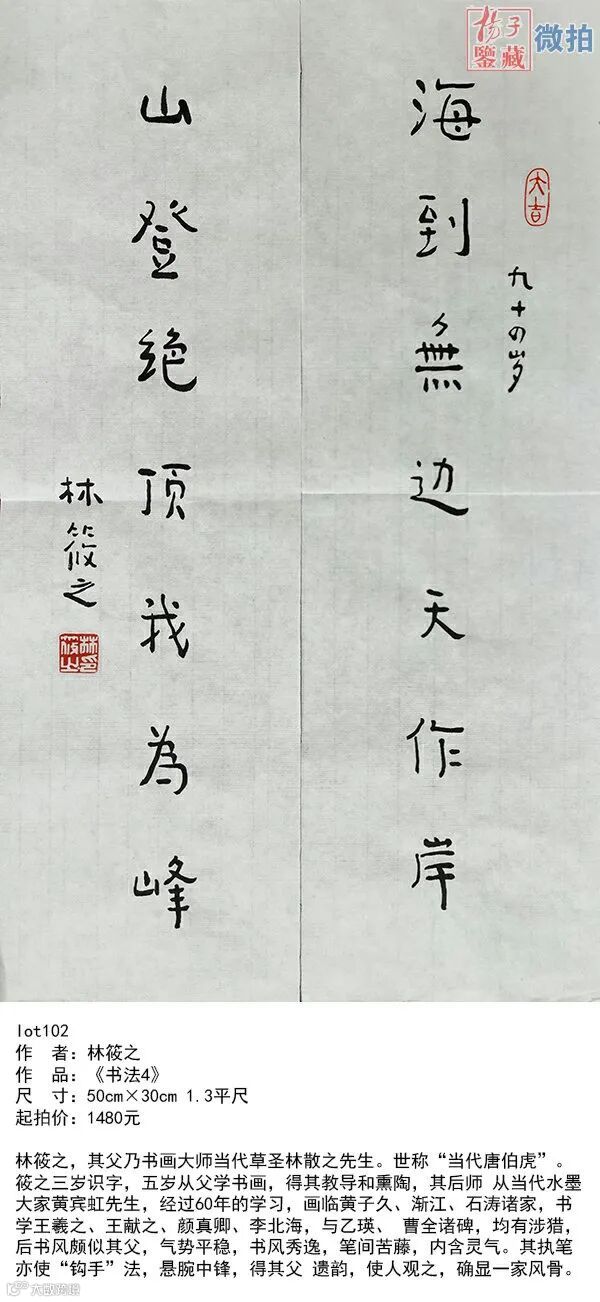 杨子
鉴藏
微拍
海到無边天作岸
大吉
九十四岁
山登绝顶我為峰
林筱之
林筱之印
lot102
作 者：林筱之
作 品：《书法4》
尺 寸：50cm×30cm 1.3平尺
起拍价：1480元
林筱之，其父乃书画大师当代草圣林散之先生。世称“当代唐伯虎”。
筱之三岁识字，五岁从父学书画，得其教导和熏陶，其后师 从当代水墨
大家黄宾虹先生，经过60年的学习，画临黄子久、渐江、石涛诸家，书
学王羲之、王献之、颜真卿、李北海，与乙瑛、 曹全诸碑，均有涉猎，
后书风颇似其父，气势平稳，书风秀逸，笔间苦藤，内含灵气。其执笔
亦使“钩手”法，悬腕中锋，得其父 遗韵，使人观之，确显一家风骨。
大欧跨境